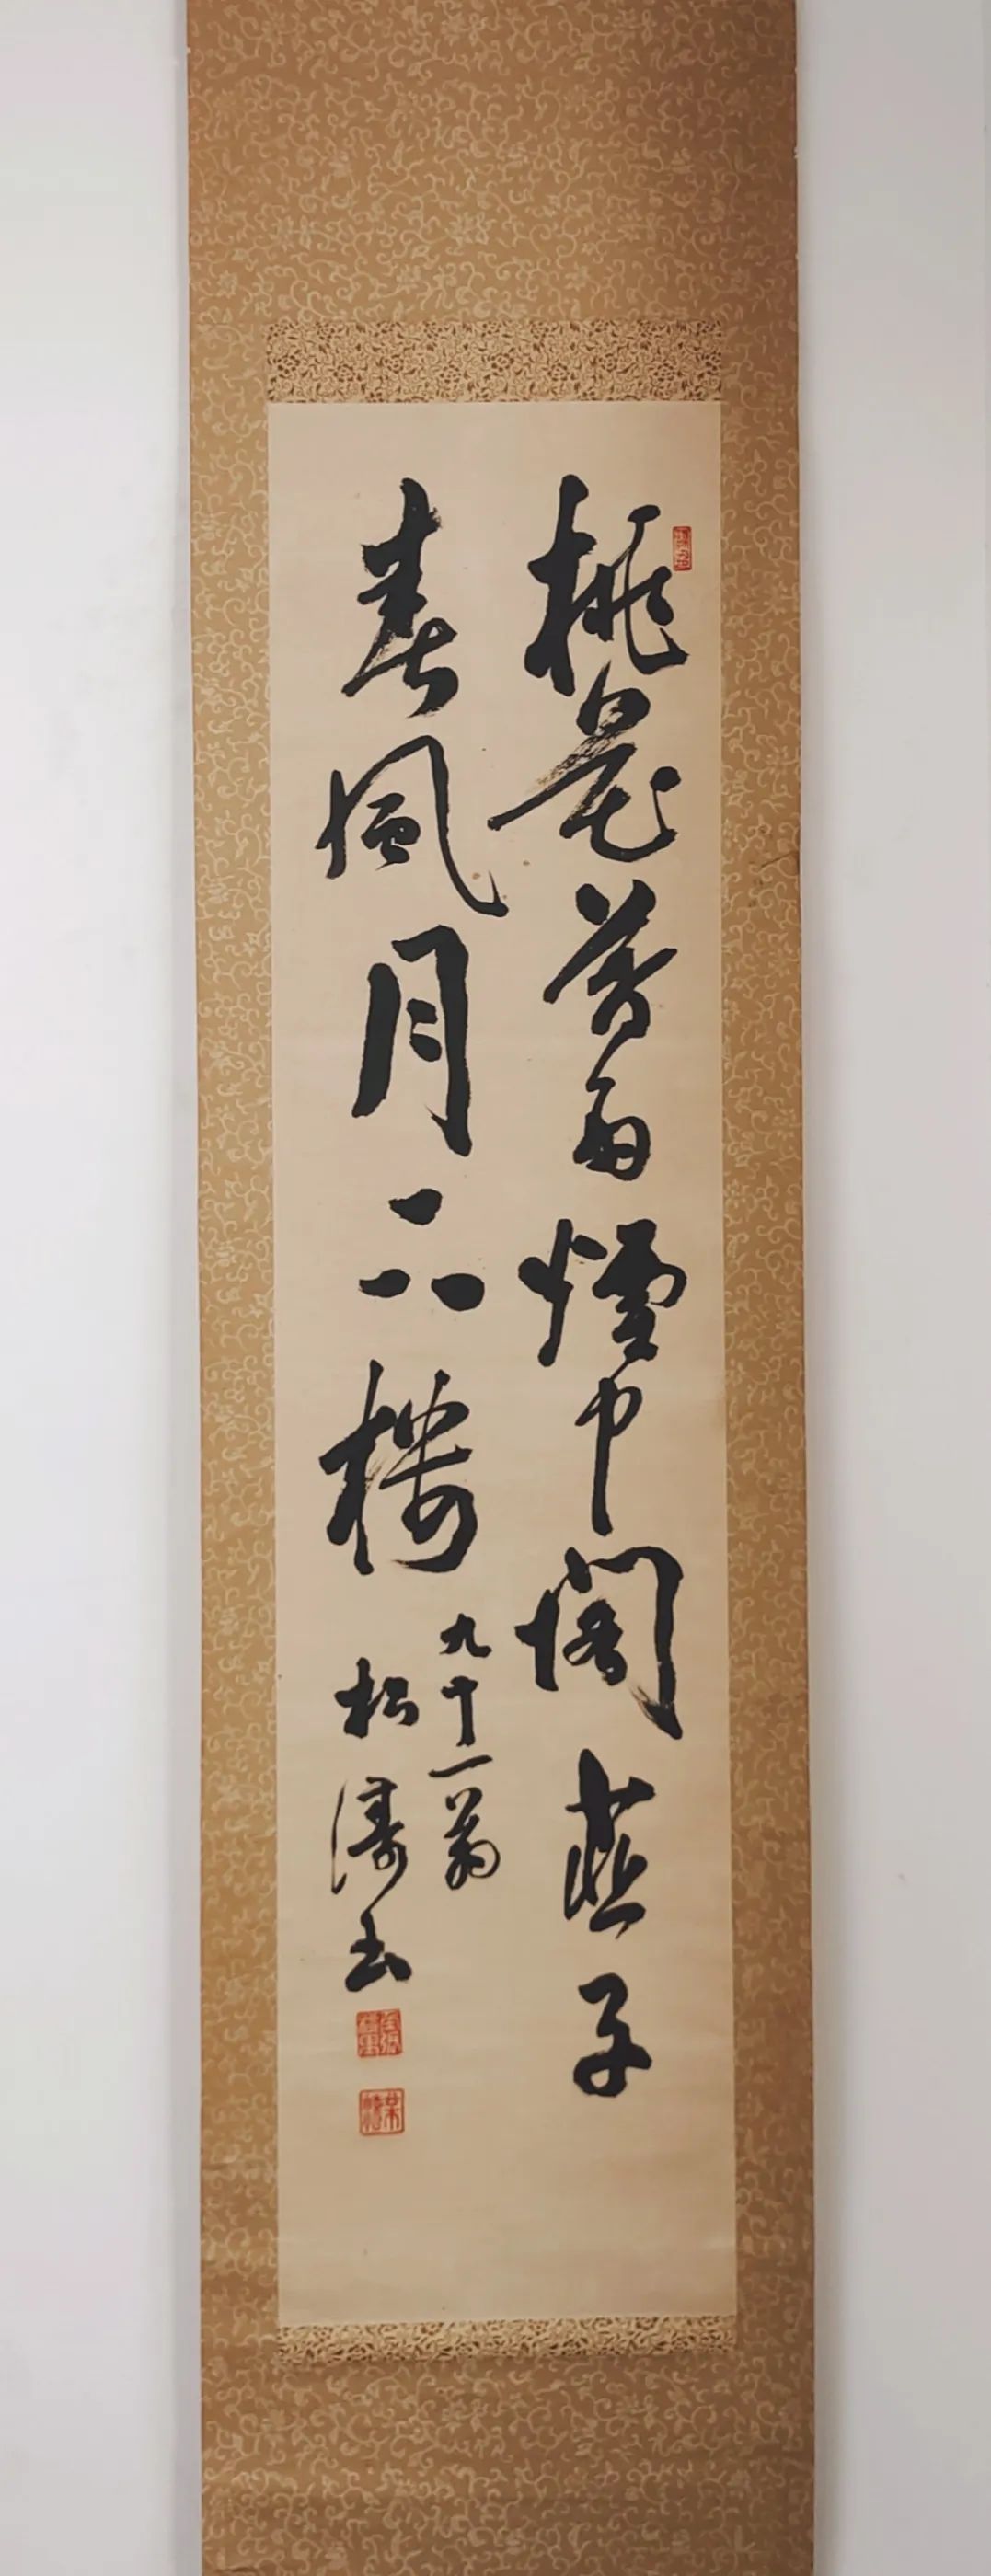 桃花暮雨煙中閣燕子
春風月下樓
九十一翁
松濤書